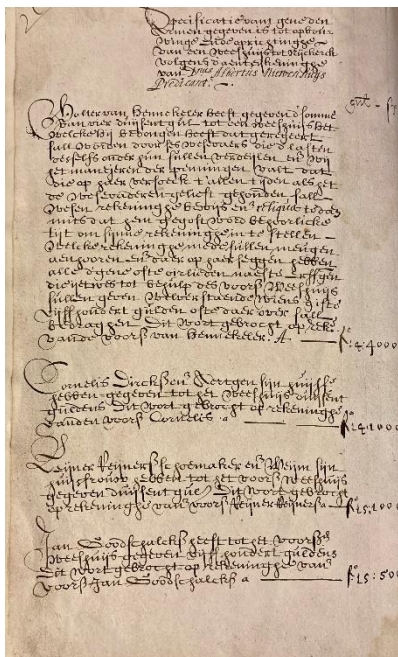 2
Specificatie vant gene den
Armen gegeven is tot opbou
winge ende oprichtinge
van een Weeshuijs tot Nijckerck
volgens d'aenteekeninghe
van Domus Albertus Nieuwenhuijs
Predicant.
Wolter van Hennekeler heeft gegeven d'somme
van vier duijsent gul tot een Weeshuijs het
welcke hij bedongen heeft dat geregeert
sall worden door des Weesvaers die d'lasten
desselfs onder hun sullen verdeijlen en bij
het manieren der penningen valt dat
die op haer versoek t'allen tijden als het
de Weesvaderen gelieft gehouden sall
wesen rekeninghe bewijs en reliqua te doen
mits dat hem gegost word behoorlicke
tijt om sijnne rekeninghe in te stellen
Welcke rekeninghe mede sullen meugen
aenhooren en daer op haer seggen hebben
alle d'gene ofte eijrlieden naeste Erffgen
die ijetwes tot behulp des voors Weeshuijs
sullen geven welverstaende wiens gifte
vijff hondert gulden ofte daer over sall
bedraghen. Dit wort gebrocht op reke
vande voors van Hennekeler. A — fo: 4: 4000
Cornelis Dirckssen Aertgen sijn huijsfr
hebben gegeven tot het Weeshuijs duijsent
guldens dit wort gebrocht op rekeninghe
vanden voors Cornelis. a — fo: 14: 1000
Reijner Reijnerss schoemaker en Weijm sijn
huijsfrouw hebben tot het voors Weeshuijs
gegeven duijsent gul. Dit wort gebrocht
op rekeninghe van voors Reijner Reijners a — fo: 15: 100
Jan Goodschalcks heeft tot het voors
Weeshuijs gegeven vijff hondert guldens
Dit wort gebrocht op rekeninghe van
voors Jan Goodschalcks a — fo: 15: 50